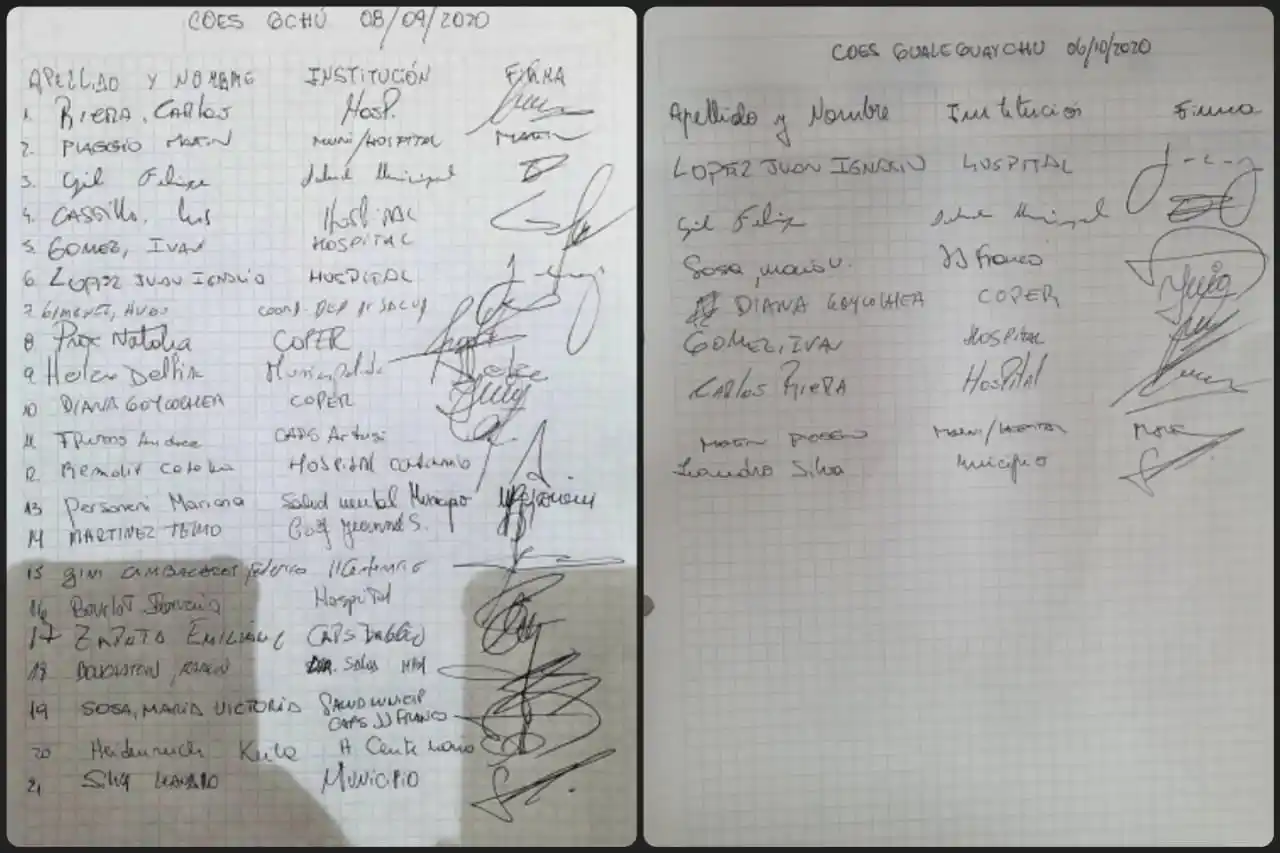 COES GCHÚ 08/09/2020
APELLIDO Y NOMBRE INSTITUCIÓN FIRMA
1. RIERA, CARLOS HOSP.
2. PIAGGIO MARTIN MUNI/HOSPITAL MARTIN
3. Gil Felipe Salud Municipal
4. CASTILLO, Luis HOSPITAL
5. GOMEZ, IVAN HOSPITAL
6. LOPEZ JUAN IGNACIO HOSPITAL
7. GIMENEZ, HUGO COORD. DEP DE SALUD
8 Natalia COPER
9. Delfin Municipalidad
10 DIANA GOYCOCHEA COPER
11 Andrea CAPS Artusi
12. HOSPITAL Centenario
13 Personeni Mariana Salud mental Municipio
14 MARTINEZ TEMO
15 Federico H Centenario
16 Hospital
17 ZAPATA EMILIANO CAPS
18 Salud
19 SOSA, MARIA VICTORIA SALUD MUNICIP
CAPS JJ FRANCO
20 Keila H Centenario
21 Silva LEANDRO MUNICIPIO
COES GUALEGUAYCHU 06/10/2020
Apellido y Nombre Institución Firma
LOPEZ JUAN IGNACIO HOSPITAL
Gil Felipe Salud Municipal
Sosa, María V. JJ Franco
DIANA GOYCOCHEA COPER
GOMEZ, IVAN HOSPITAL
CARLOS RIERA HOSPITAL
MARTIN PIAGGIO MUNI/HOSPITAL
Leandro Silva Municipio